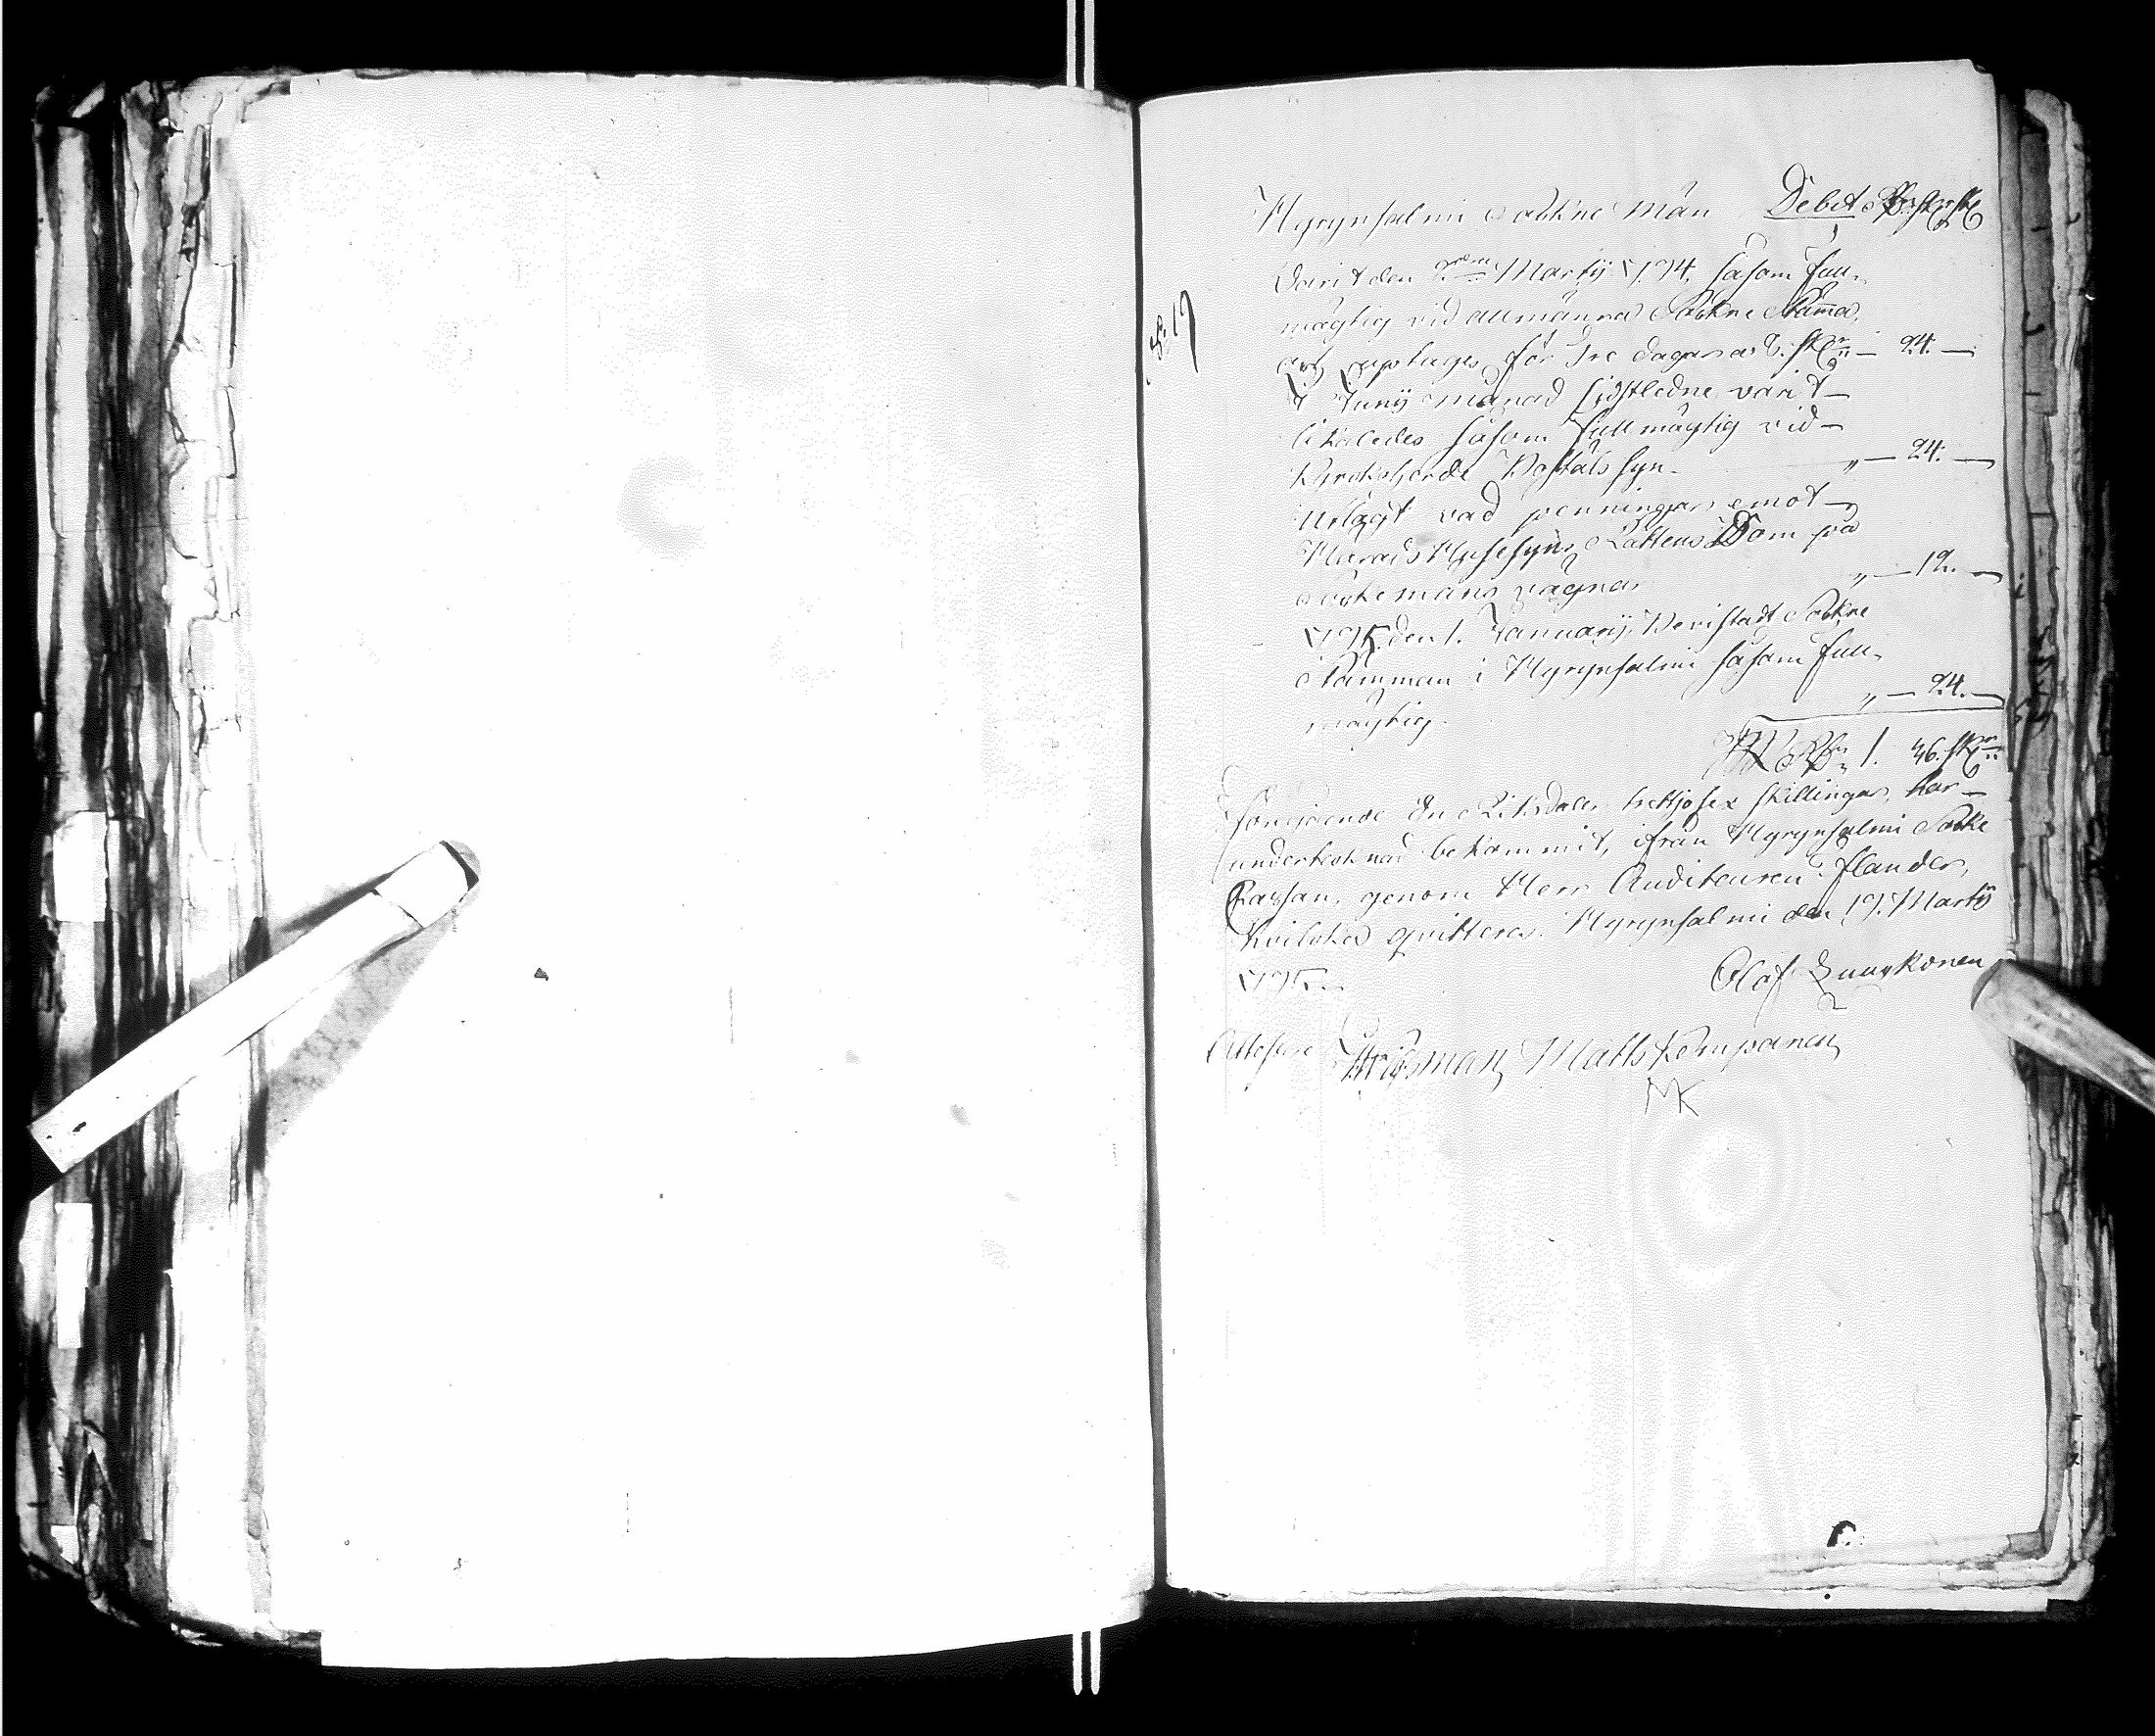 Hyrynsalmi Sockne Män Debet Rdr sk
varit den 9 Martij 1794, såsom full-
mägtig vid allmänna Sockne Stämma,
och uptages för Tre dagar a 8. skr — 24. —
I Junij månad sidstledne varit
likaledes såsom fullmägtig vid
Kyrkoherde Bostäls syn. „ — 24. —
utlagt vad penningar emot
Härads Husesyns Rättens Dom på
Sockemäns vägnar „ — 12. —
1795 den 1. Januarij, Bevistadt Sockne
Stämman i Hyrynsalmi såsom full-
mägtig. „ — 24. —
Rdr 1. 36. skr
Föregående En Riksdaler trettjosex skillingar, har
undertecknad bekommit, ifrån Hyrynsalmi Socke
Cassan, genom Herr Auditeuren Flander,
hvilcket qvitteras. Hyrynsalmi den 19. Martij
1795.
Olof Jungkonen
Attesterar Matts Kemppanen
MK